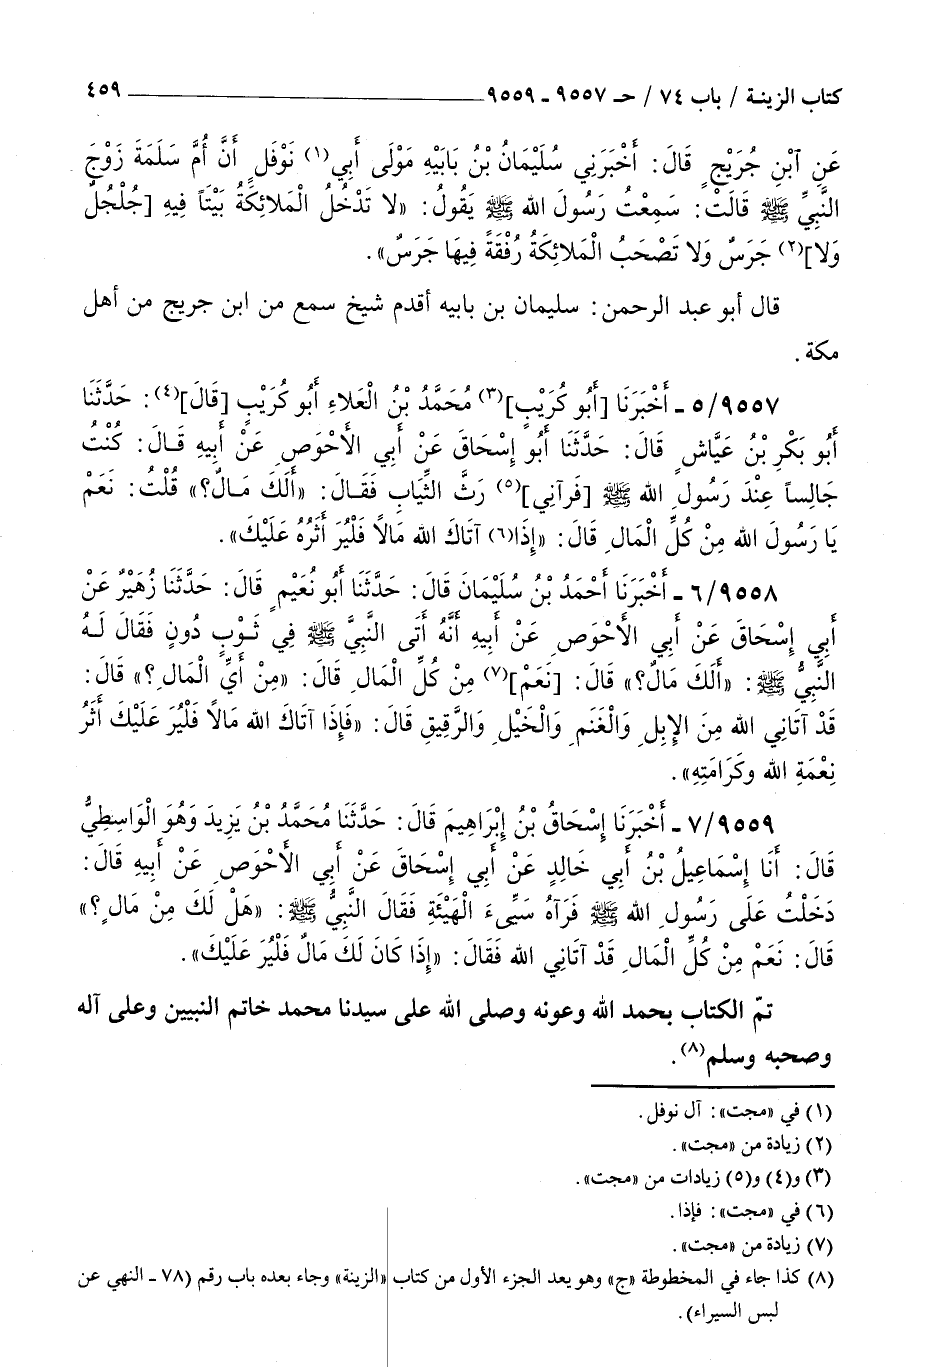 كتاب الزينة / باب ٧٤ / حـ ٩٥٥٧ ـ ٩٥٥٩ ٤٥٩
عَنِ ٱبْنِ جُرَيْجٍ قَالَ: أَخْبَرَنِي سُلَيْمَانُ بْنُ بَابَيْهِ مَوْلَى أَبِي(١) نَوْفَلٍ أَنَّ أُمَّ سَلَمَةَ زَوْجَ
النَّبِيِّ ﷺ قَالَتْ: سَمِعْتُ رَسُولَ الله ﷺ يَقُولُ: «لا تَدْخُلُ الْمَلائِكَةُ بَيْتَاً فِيهِ [جُلْجُلٌ
وَلا](٢) جَرَسٌ وَلا تَصْحَبُ الْمَلائِكَةُ رُفْقَةً فِيهَا جَرَسٌ».
قال أبو عبد الرحمن: سليمان بن بابيه أقدم شيخ سمع من ابن جريج من أهل
مكة.
٩٥٥٧/٥ ـ أَخْبَرَنَا [أَبُو كُرَيْبٍ](٣) مُحَمَّدُ بْنُ الْعَلاءِ أَبُو كُرَيْبٍ [قَالَ](٤): حَدَّثَنَا
أَبُو بَكْرِ بْنُ عَيَّاشٍ قَالَ: حَدَّثَنَا أَبُو إِسْحَاقَ عَنْ أَبِي الأَحْوَصِ عَنْ أَبِيهِ قَالَ: كُنْتُ
جَالِساً عِنْدَ رَسُولِ الله ﷺ [فَرَآنِي](٥) رَثَّ الثِّيَابِ فَقَالَ: «أَلَكَ مَالٌ؟» قُلْتُ: نَعَمْ
يَا رَسُولَ الله مِنْ كُلِّ الْمَالِ قَالَ: «إِذَا(٦) آتَاكَ الله مَالاً فَلْيُرَ أَثَرُهُ عَلَيْكَ».
٩٥٥٨/٦ ـ أَخْبَرَنَا أَحْمَدُ بْنُ سُلَيْمَانَ قَالَ: حَدَّثَنَا أَبُو نُعَيْمٍ قَالَ: حَدَّثَنَا زُهَيْرٌ عَنْ
أَبِي إِسْحَاقَ عَنْ أَبِي الأَحْوَصِ عَنْ أَبِيهِ أَنَّهُ أَتَى النَّبِيَّ ﷺ فِي ثَوْبٍ دُونٍ فَقَالَ لَهُ
النَّبِيُّ ﷺ: «أَلَكَ مَالٌ؟» قَالَ: [نَعَمْ](٧) مِنْ كُلِّ الْمَالِ قَالَ: «مِنْ أَيِّ الْمَالِ؟» قَالَ:
قَدْ آتَانِي الله مِنَ الإِبِلِ وَالْغَنَمِ وَالْخَيْلِ وَالرَّقِيقِ قَالَ: «فَإِذَا آتَاكَ الله مَالاً فَلْيُرَ عَلَيْكَ أَثَرُ
نِعْمَةِ الله وَكَرَامَتِهِ».
٩٥٥٩/٧ ـ أَخْبَرَنَا إِسْحَاقُ بْنُ إِبْرَاهِيمَ قَالَ: حَدَّثَنَا مُحَمَّدُ بْنُ يَزِيدَ وَهُوَ الْوَاسِطِيُّ
قَالَ: أَنَا إِسْمَاعِيلُ بْنُ أَبِي خَالِدٍ عَنْ أَبِي إِسْحَاقَ عَنْ أَبِي الأَحْوَصِ عَنْ أَبِيهِ قَالَ:
دَخَلْتُ عَلَى رَسُولِ الله ﷺ فَرَآهُ سَيِّىءَ الْهَيْئَةِ فَقَالَ النَّبِيُّ ﷺ: «هَلْ لَكَ مِنْ مَالٍ؟»
قَالَ: نَعَمْ مِنْ كُلِّ الْمَالِ قَدْ آتَانِي الله فَقَالَ: «إِذَا كَانَ لَكَ مَالٌ فَلْيُرَ عَلَيْكَ».
تمّ الكتاب بحمد الله وعونه وصلى الله على سيدنا محمد خاتم النبيين وعلى آله
وصحبه وسلم(٨).
(١) في «مجت»: آل نوفل.
(٢) زيادة من «مجت».
(٣) و(٤) و(٥) زيادات من «مجت».
(٦) في «مجت»: فإذا.
(٧) زيادة من «مجت».
(٨) كذا جاء في المخطوطة «ج» وهو يعد الجزء الأول من كتاب «الزينة» وجاء بعده باب رقم (٧٨ ـ النهي عن
لبس السيراء).